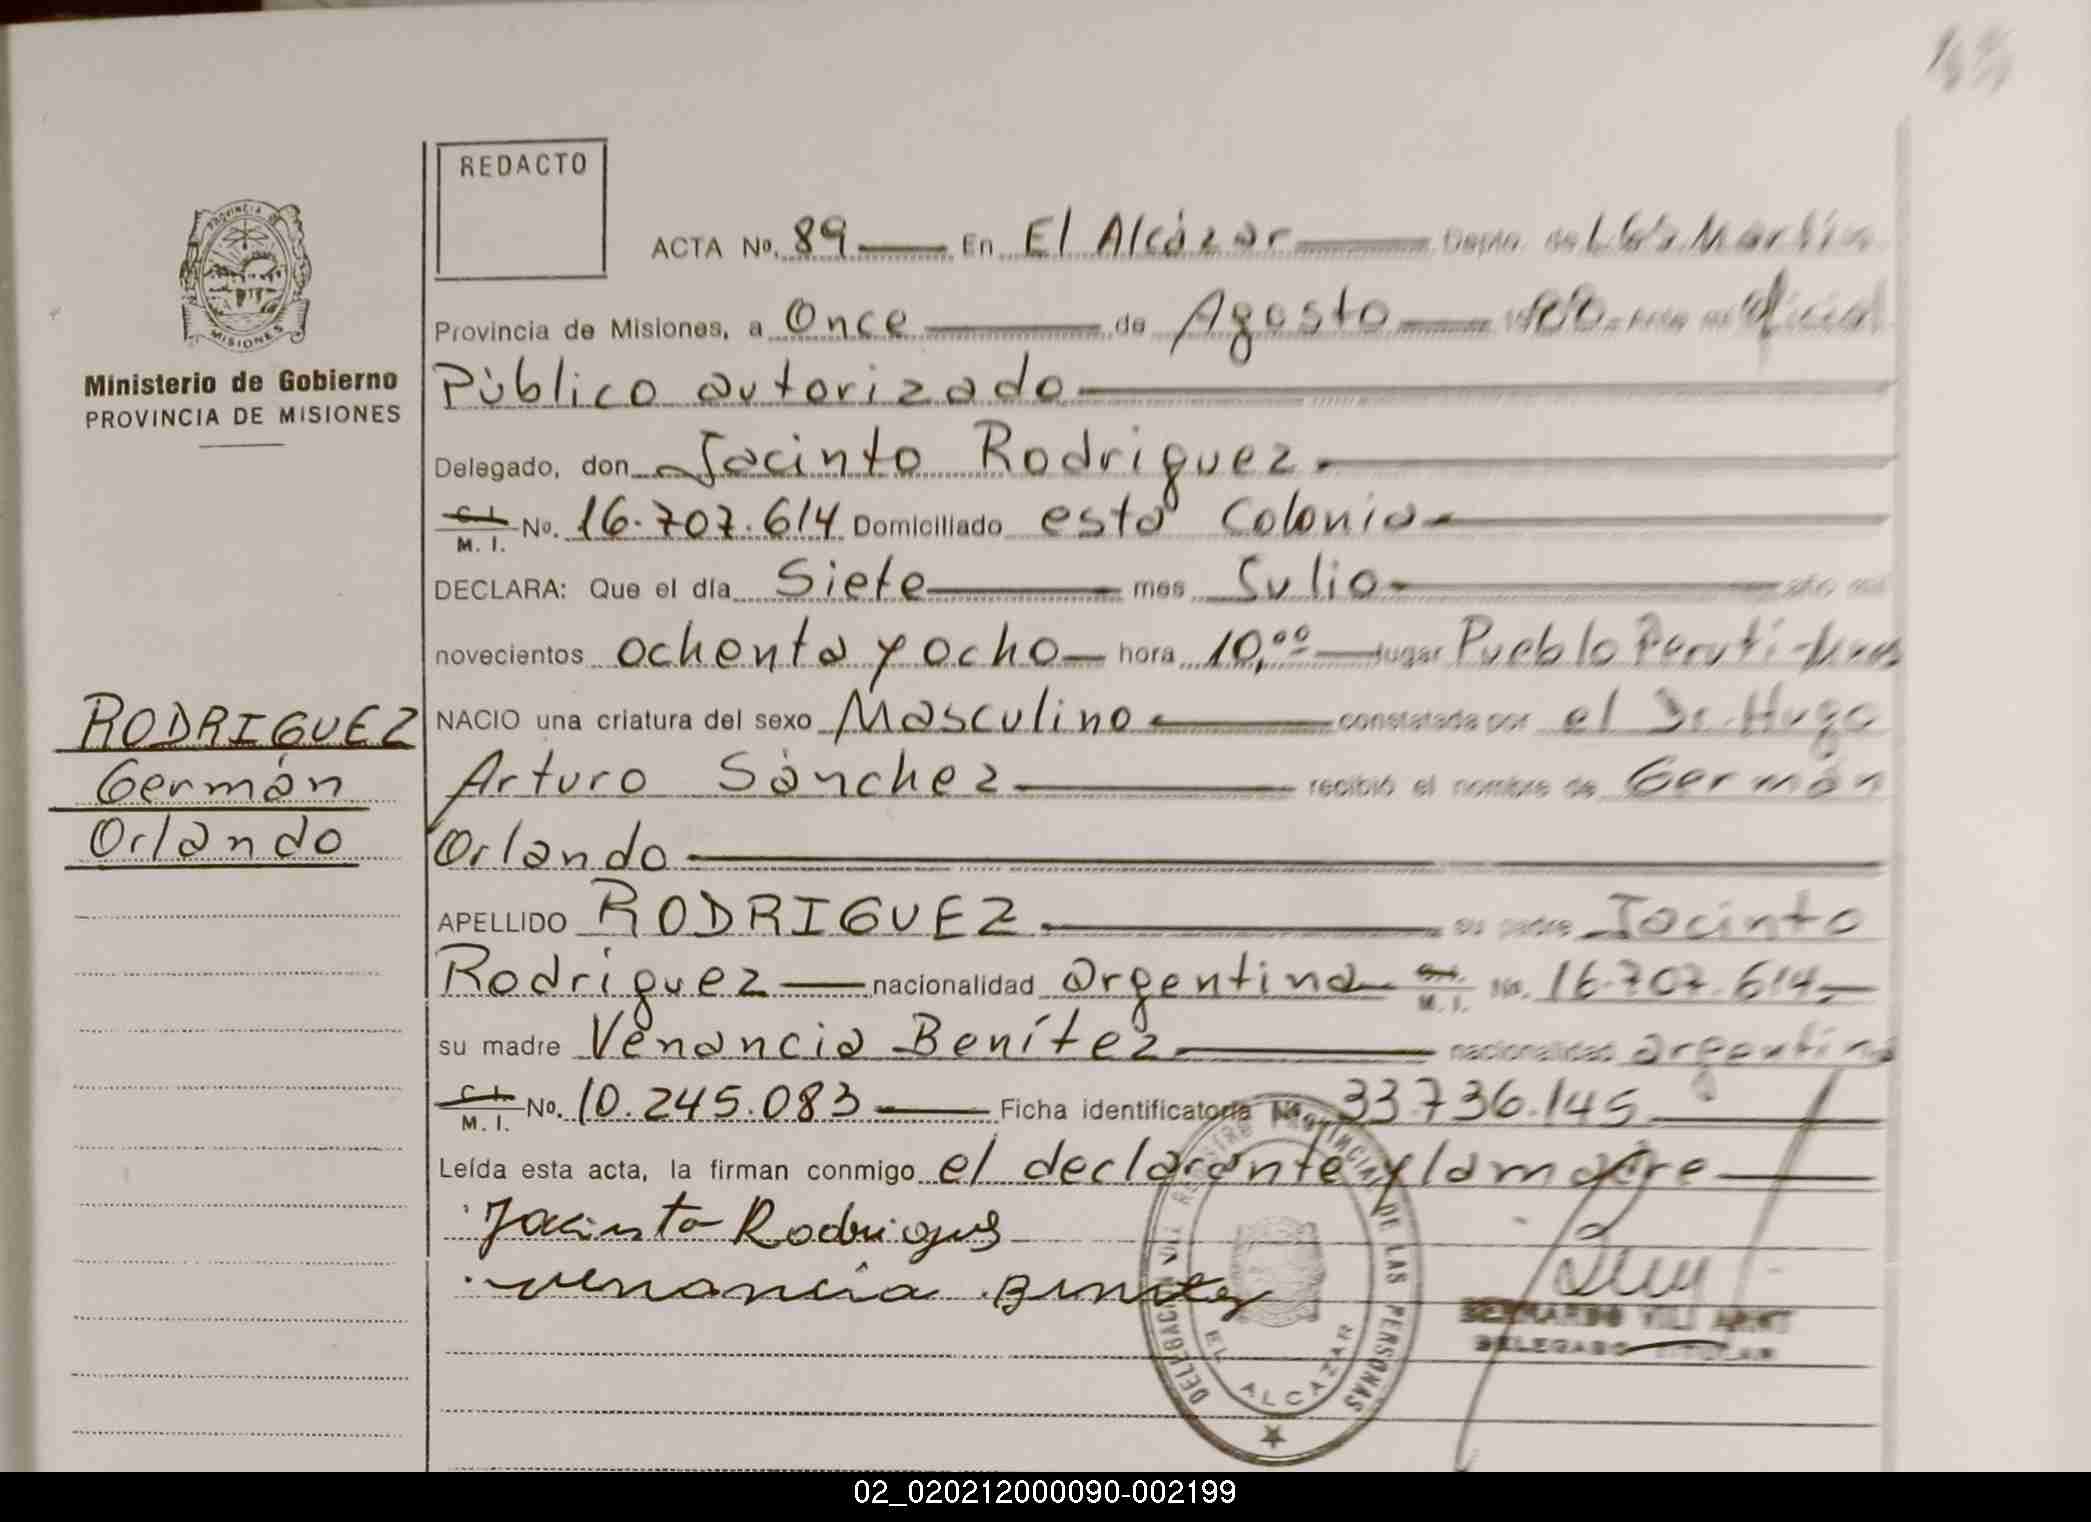 REDACTO
ACTA Nº. 89 En El Alcázar Depto. de
Provincia de Misiones, a Once de Agosto 1988 oficial
Público autorizado
Delegado, don Jacinto Rodriguez
C. I. M. I. Nº. 16.707.614 Domiciliado esta Colonia
DECLARA: Que el día Siete mes Julio año mil
novecientos ochenta y ocho hora 10,⁰⁰ lugar Pueblo Peruti
NACIO una criatura del sexo Masculino constatada por el Dr. Hugo
Arturo Sánchez recibió el nombre de Germán
Orlando
APELLIDO RODRIGUEZ su padre Jacinto
Rodríguez nacionalidad argentina C. I. M. I. Nº. 16.707.614
su madre Venancia Benítez nacionalidad argentina
C. I. M. I. Nº. 10.245.083 Ficha identificatoria Nº. 33.736.145
Leída esta acta, la firman conmigo el declarante y la madre
Jacinto Rodrigues
venancia Benitez
PROVINCIA DE
MISIONES
Ministerio de Gobierno
PROVINCIA DE MISIONES
RODRIGUEZ
Germán
Orlando
DELEGACION REGISTRO PROVINCIAL DE LAS PERSONAS
EL ALCAZAR
BERNARDO VILI ARNT
DELEGADO TITULAR
02_020212000090-002199